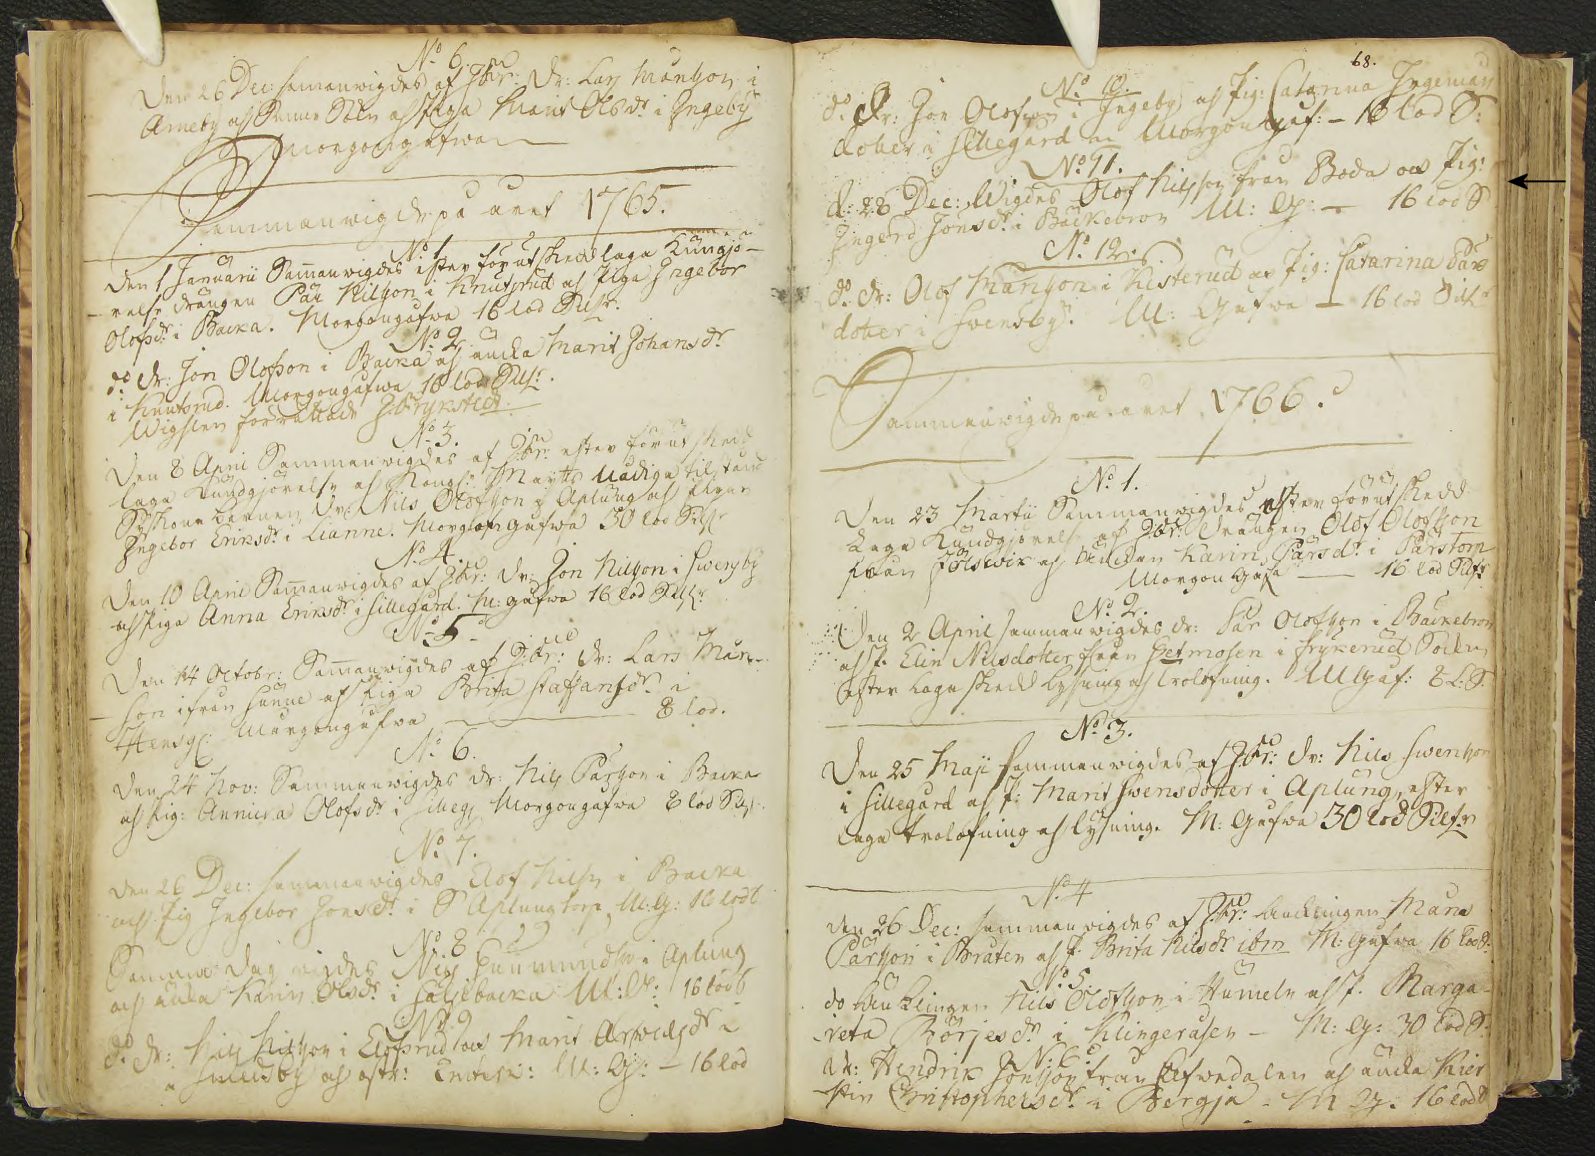 No 6.
Den 26 Dec: sammanwigdes af Dr: Lars Månsson i
Arneby och Piga Marit Olsdr i Ingeby
Morgongåfwa
Sammanwigde på året 1765.
No 1.
Den 1 Januarii Samanwigdes efter förut skedd laga Kungjö-
relse drängen Pär Nilsson i Knutsrud och Piga Ingebor
Olofsdr i Backa. Morgongåfwa 16 lod Silfr.
No 2.
do Dr: Jon Olofsson i Backa och änka Marit Johansdr
i Knutsrud. Morgongåfwa 16 lod Silfr.
Wigslen förrättade Frykstedt.
No 3.
Den 8 April Sammanwigdes af efter förut skedd
laga Kundgjörelse och Kongl: Maytts nådiga tilstånd
Syskone barnen Dr: Nils Olofsson i Aplung och Pigan
Ingebor Eriksdr i Lianne. Morgongåfwa 30 lod Silfr
No 4.
Den 10 April Samanwigdes af Dr: Jon Nilsson i Swensby
och Piga Anna Eriksdr i Sillegård. M: gåfwa 16 lod Silfr
No 5
Den 14 Octobr: Samanwigdes af Dr: Lars Mån-
son ifrån Sunne och Piga Brita Staffansdr i
Morgongåfwa 8 lod.
No 6.
Den 24 Nov: Sammanwigdes dr: Nils Pärsson i Backa
och Pig: Annica Olofsdr i Silleg: Morgongåfwa 8 lod Silfr.
No 7.
Den 26 Dec: sammanwigdes Elof Nilsn i Backa
och Pig Ingebor Jonsdr i S Aplungtorp M: G: 16 lod
No 8
Samma dag wigdes Nils Gunmundsn i Aplung
och änka Karin Olsdr i backa M: G: 16 lod
No 9
do dr: Nils Nilsson i Elofsrud och Marit Arwidsdr i
Smedsby M: G: – 16 lod
68.
No 10.
do Dr: Jon Olofson i Ingeby och Pig: Catarina Ingemars
doter i Sillegård Morgongåf: – 16 lod S:
No 11.
d: 28 Dec: Wigdes Olof Nilsson från Boda och Pig:
Ingerd Jonsdr i Bäckebron M: G: – 16 lod S
No 12.
do dr: Olof Månsson i Kisterud och Pig: Catarina Pärs
doter i Swensby. M: Gåfwa – 16 lod Silfr
Sammanwigde på året 1766.
No 1.
Den 23 Martii Sammanwigdes efter förut skedd
Laga Kundgjörelse af drängen Olof Olofsson
från Jölsewik och Enckan Karin Pärsdr i Pärstorp
Morgon Gåfa – 16 lod Silfr
No 2.
Den 2 April sammanwigdes dr: Pär Olofsson i Bäckebron
och P. Elin Nilsdotter från Getmosen i Frykerud Sockn
efter laga skedd lysning och trolofning. M Gåf: 8 L: S.
No 3.
Den 25 Maji sammanwigdes af Dr: Nils Swensson
i Sillegård och P: Marit Swensdotter i Aplung, efter
laga trolofning och lysning. M: Gåfwa 30 lod Silfr
No 4
den 26 Dec: sammanwigdes af änklingen Måns
Pärsson i Bråten och P. Brita Nilsdr ibm M: Gåfwa 16 lod S.
No 5.
do änklingen Nils Olofsson i Humeln och P. Marga-
reta Börjesdr i Klingeråsen – M: G: 30 lod S.
No 6.
Dr: Hendrik Jonsson från Elfwedalen och änka Kier
stin Christophersdr i Bergja – M G. 16 lod S